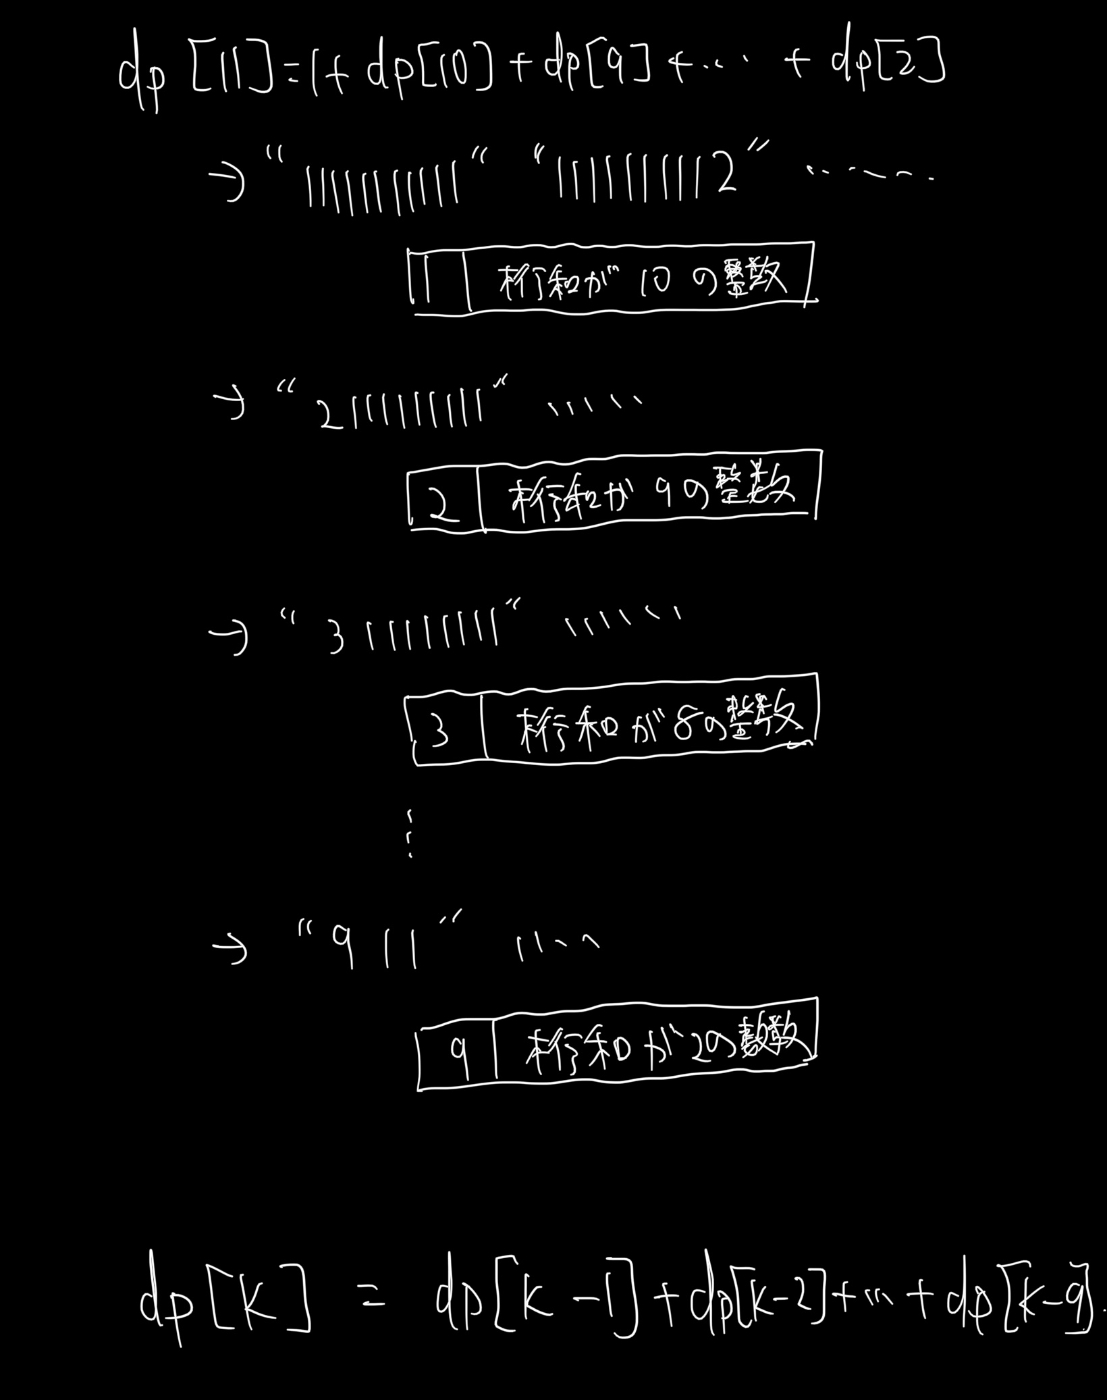 dp[11]=1+dp[10]+dp[9]+…+dp[2]
→ "11111111111" "1111111112" ……
1 桁和が10の整数
→ "2111111111" ……
2 桁和が9の整数
→ "311111111" ……
3 桁和が8の整数
⋮
→ "911" ……
9 桁和が2の数数
dp[k] = dp[k-1]+dp[k-2]+…+dp[k-9].